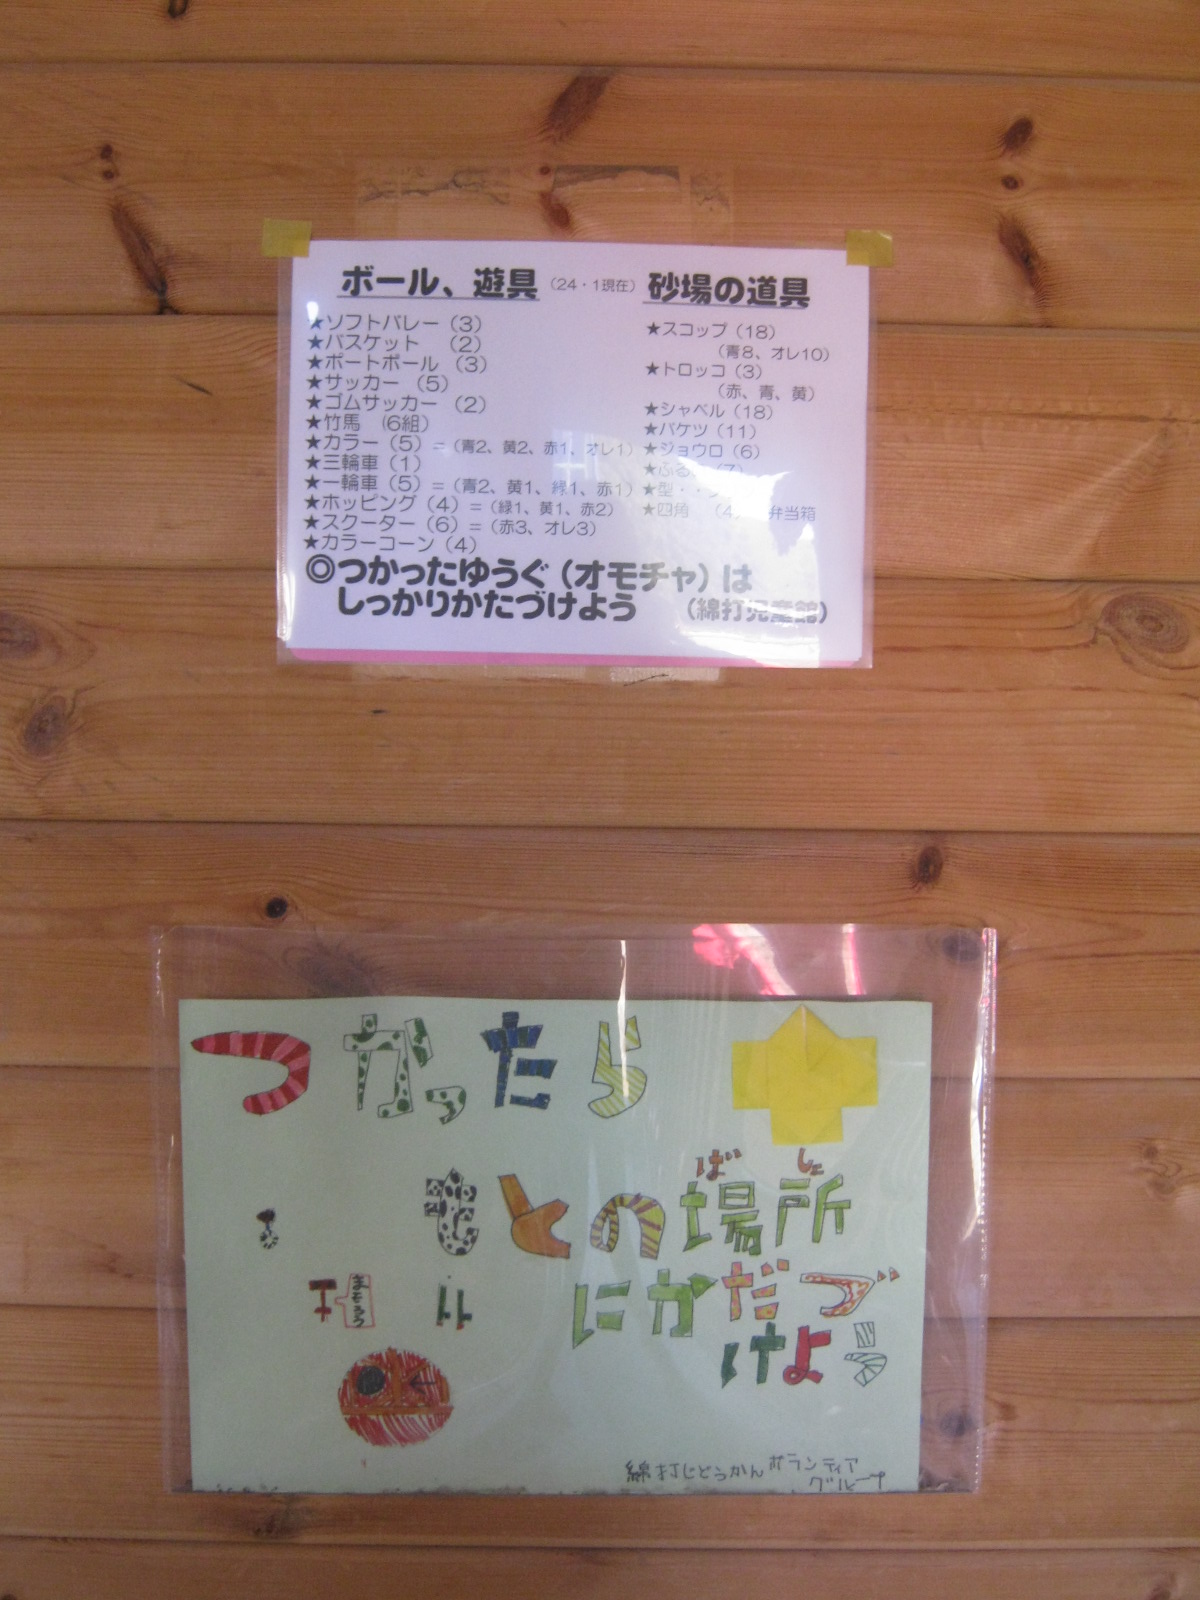 ボール、遊具（24・1現在）
★ソフトバレー（3）
★バスケット （2）
★ポートボール （3）
★サッカー （5）
★ゴムサッカー （2）
★竹馬 （6組）
★カラー（5）＝（青2、黄2、赤1、オレ1）
★三輪車（1）
★一輪車（5）＝（青2、黄1、緑1、赤1）
★ホッピング（4）＝（緑1、黄1、赤2）
★スクーター（6）＝（赤3、オレ3）
★カラーコーン（4）
砂場の道具
★スコップ（18）
（青8、オレ10）
★トロッコ（3）
（赤、青、黄）
★シャベル（18）
★バケツ（11）
★ジョウロ（6）
★ふる （7）
★型・・
★四角 （4） 弁当箱
◎つかったゆうぐ（オモチャ）は
しっかりかたづけよう （綿打児童館）
つかったら
ばしょ
もとの場所
にかだづ
けよう
綿打じどうかんボランティア
グループ